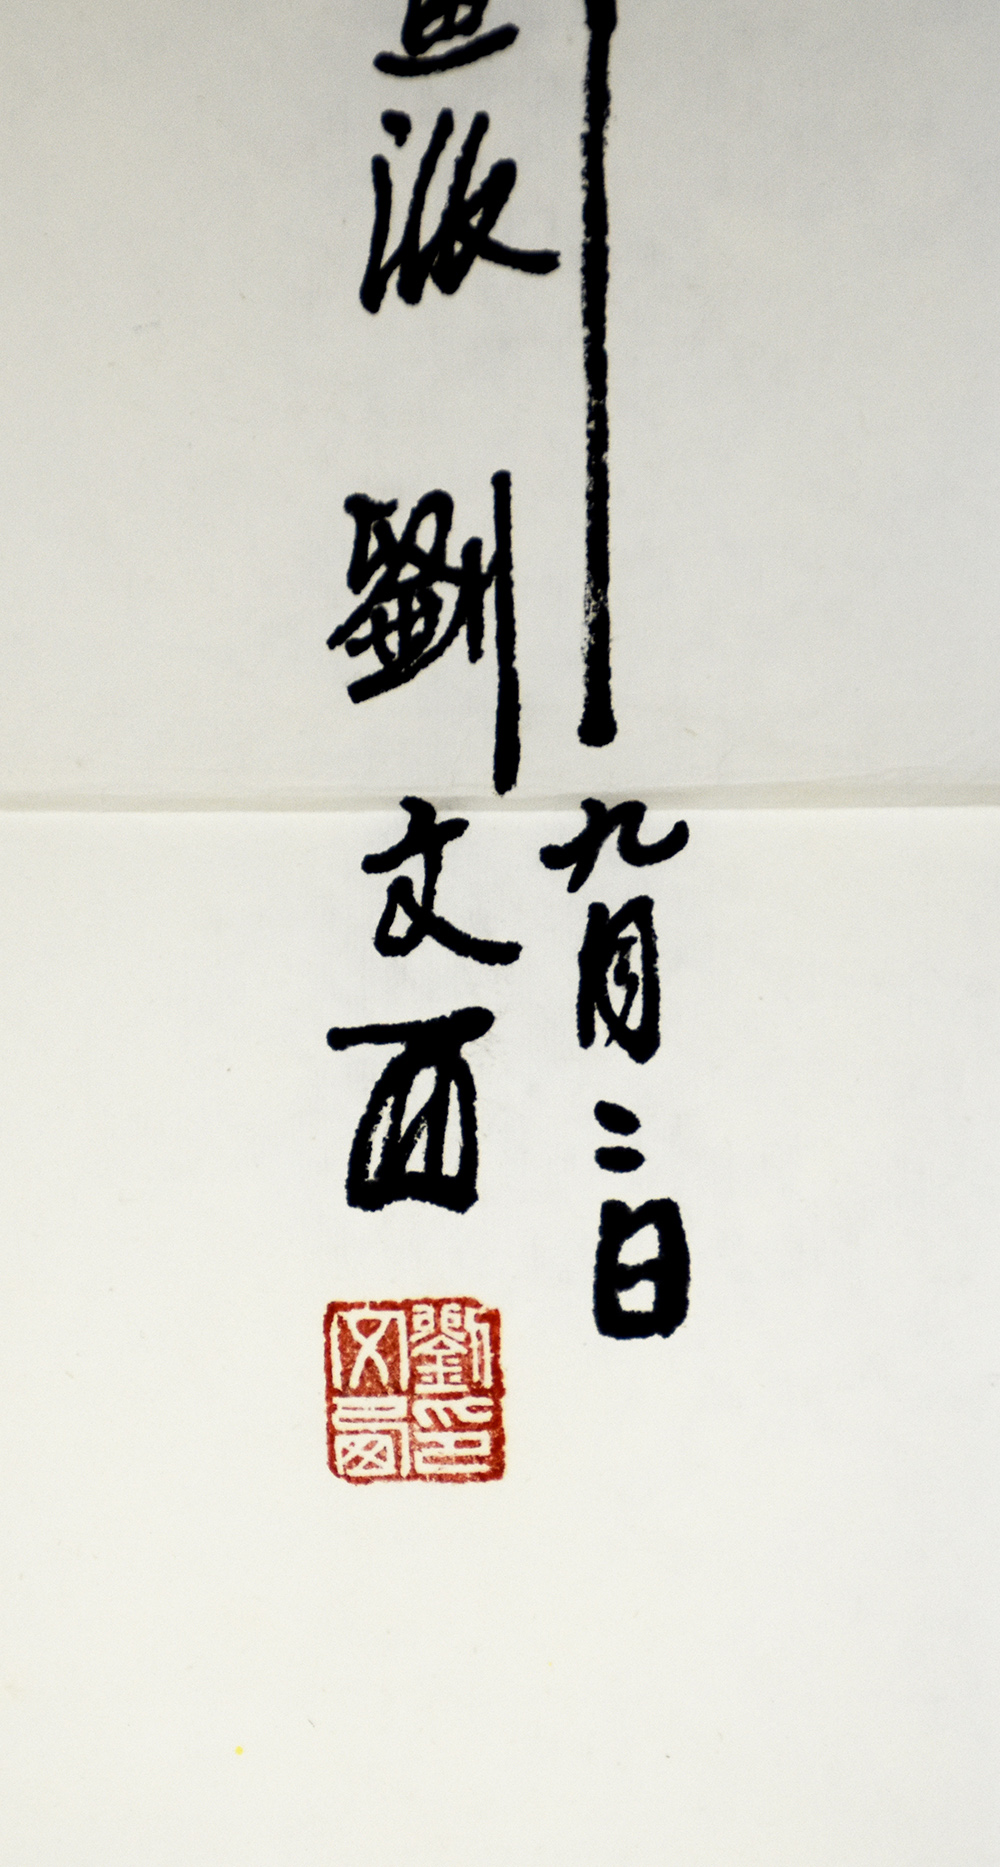 九月二日
画派 劉文西
劉印
文西